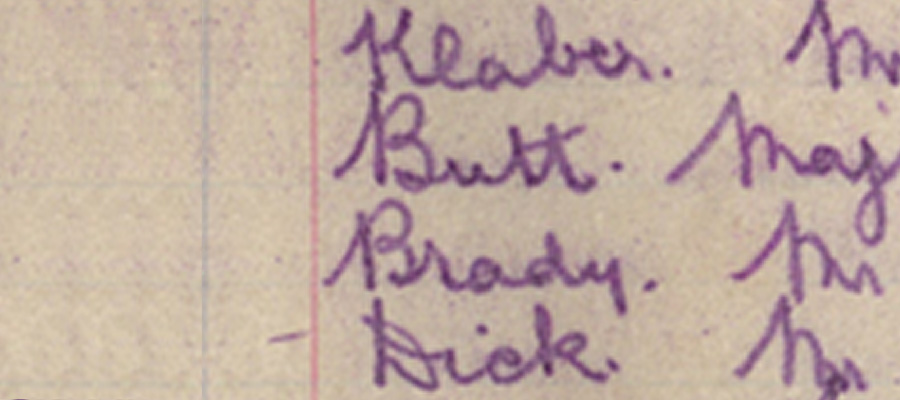 Klaber. Mr
Butt. Maj
Brady. Mr
Dick. Mr